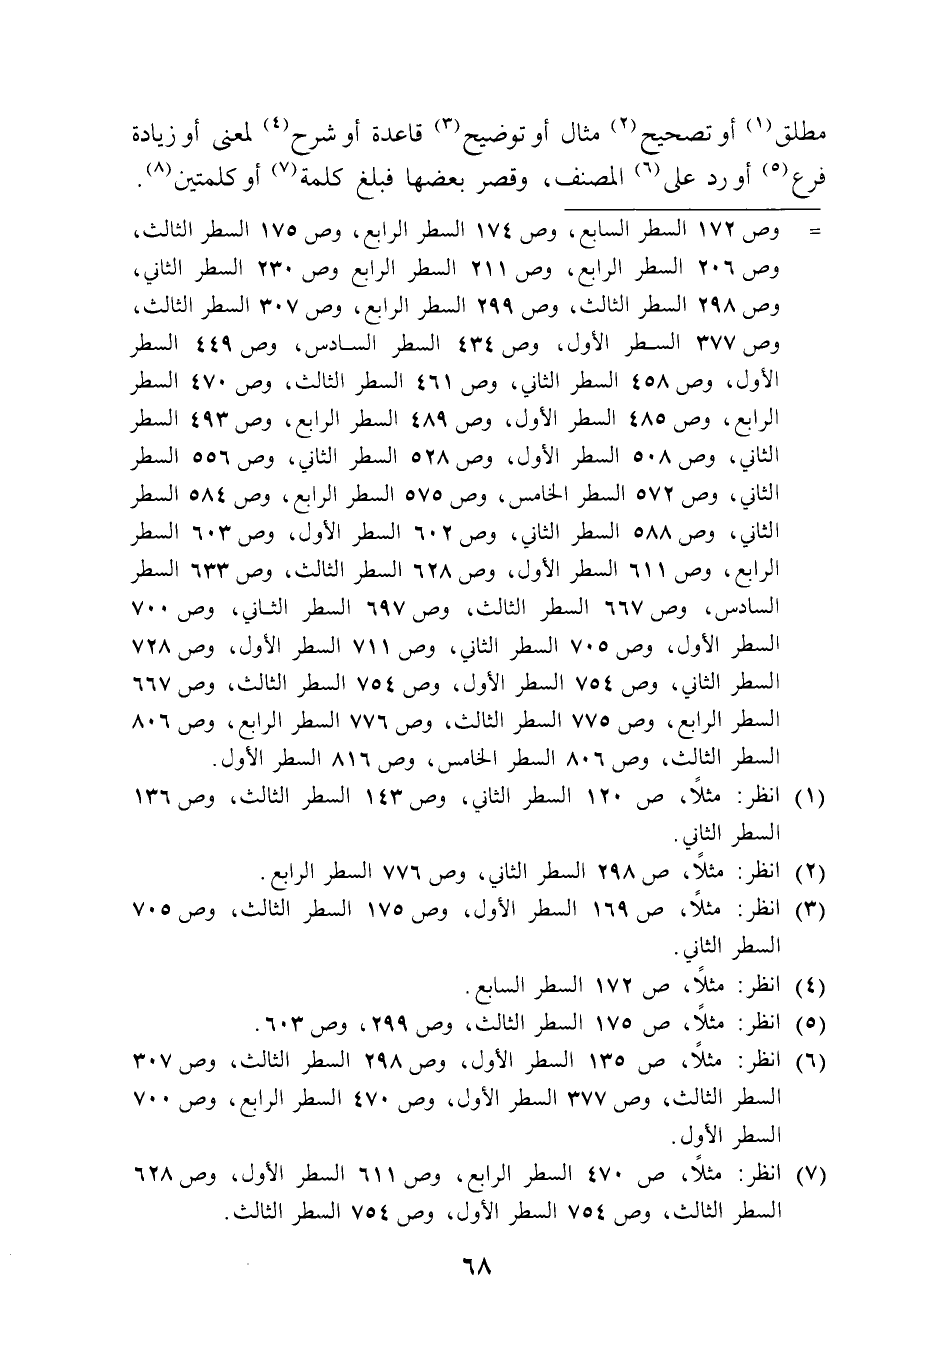 مطلق(١) أو تصحيح(٢) مثال أو توضيح(٣) قاعدة أو شرح(٤) لمعنى أو زيادة
فرع(٥) أو رد على(٦) المصنف، وقصر بعضها فبلغ كلمة(٧) أو كلمتين(٨).
= وص ١٧٢ السطر السابع، وص ١٧٤ السطر الرابع، وص ١٧٥ السطر الثالث،
وص ٢٠٦ السطر الرابع، وص ٢١١ السطر الرابع وص ٢٣٠ السطر الثاني،
وص ٢٩٨ السطر الثالث، وص ٢٩٩ السطر الرابع، وص ٣٠٧ السطر الثالث،
وص ٣٧٧ السطر الأول، وص ٤٣٤ السطر السادس، وص ٤٤٩ السطر
الأول، وص ٤٥٨ السطر الثاني، وص ٤٦١ السطر الثالث، وص ٤٧٠ السطر
الرابع، وص ٤٨٥ السطر الأول، وص ٤٨٩ السطر الرابع، وص ٤٩٣ السطر
الثاني، وص ٥٠٨ السطر الأول، وص ٥٢٨ السطر الثاني، وص ٥٥٦ السطر
الثاني، وص ٥٧٢ السطر الخامس، وص ٥٧٥ السطر الرابع، وص ٥٨٤ السطر
الثاني، وص ٥٨٨ السطر الثاني، وص ٦٠٢ السطر الأول، وص ٦٠٣ السطر
الرابع، وص ٦١١ السطر الأول، وص ٦٢٨ السطر الثالث، وص ٦٣٣ السطر
السادس، وص ٦٦٧ السطر الثالث، وص ٦٩٧ السطر الثاني، وص ٧٠٠
السطر الأول، وص ٧٠٥ السطر الثاني، وص ٧١١ السطر الأول، وص ٧٢٨
السطر الثاني، وص ٧٥٤ السطر الأول، وص ٧٥٤ السطر الثالث، وص ٦٦٧
السطر الرابع، وص ٧٧٥ السطر الثالث، وص ٧٧٦ السطر الرابع، وص ٨٠٦
السطر الثالث، وص ٨٠٦ السطر الخامس، وص ٨١٦ السطر الأول.
(١) انظر: مثلاً، ص ١٢٠ السطر الثاني، وص ١٤٣ السطر الثالث، وص ١٣٦
السطر الثاني.
(٢) انظر: مثلاً، ص ٢٩٨ السطر الثاني، وص ٧٧٦ السطر الرابع.
(٣) انظر: مثلاً، ص ١٦٩ السطر الأول، وص ١٧٥ السطر الثالث، وص ٧٠٥
السطر الثاني.
(٤) انظر: مثلاً، ص ١٧٢ السطر السابع.
(٥) انظر: مثلاً، ص ١٧٥ السطر الثالث، وص ٢٩٩، وص ٦٠٣.
(٦) انظر: مثلاً، ص ١٣٥ السطر الأول، وص ٢٩٨ السطر الثالث، وص ٣٠٧
السطر الثالث، وص ٣٧٧ السطر الأول، وص ٤٧٠ السطر الرابع، وص ٧٠٠
السطر الأول.
(٧) انظر: مثلاً، ص ٤٧٠ السطر الرابع، وص ٦١١ السطر الأول، وص ٦٢٨
السطر الثالث، وص ٧٥٤ السطر الأول، وص ٧٥٤ السطر الثالث.
٦٨